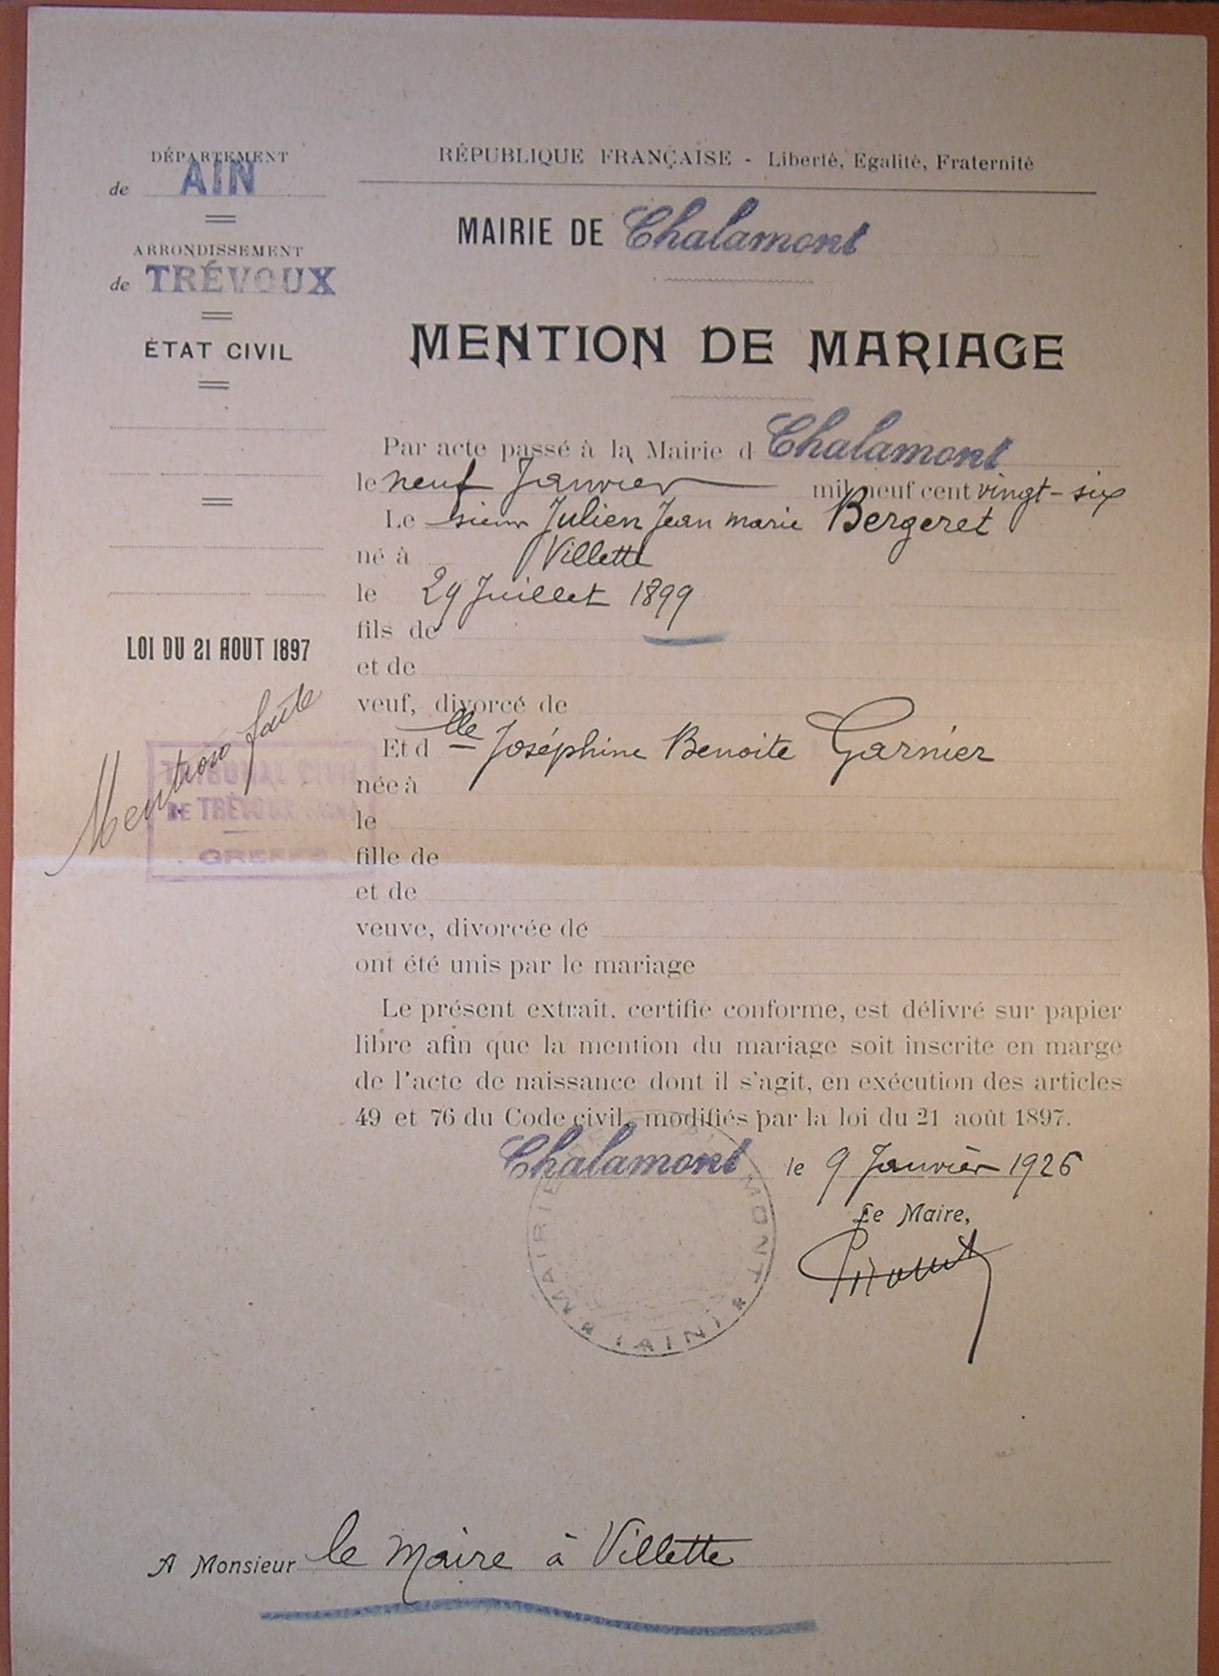 DÉPARTEMENT
de AIN
ARRONDISSEMENT
de TRÉVOUX
ÉTAT CIVIL
LOI DU 21 AOUT 1897
Mention faite
TRIBUNAL CIVIL
DE TRÉVOUX
GREFFE
RÉPUBLIQUE FRANÇAISE - Liberté, Egalité, Fraternité
MAIRIE DE Chalamont
MENTION DE MARIAGE
Par acte passé à la Mairie d Chalamont
le neuf Janvier mil neuf cent vingt-six
Le sieur Julien Jean marie Bergeret
né à Villette
le 29 Juillet 1899
fils de
et de
veuf, divorcé de
Et d lle Joséphine Benoite Garnier
née à
le
fille de
et de
veuve, divorcée de
ont été unis par le mariage
Le présent extrait, certifié conforme, est délivré sur papier
libre afin que la mention du mariage soit inscrite en marge
de l'acte de naissance dont il s'agit, en exécution des articles
49 et 76 du Code civil, modifiés par la loi du 21 août 1897.
Chalamont le 9 Janvier 1926
Le Maire,
MAIRIE MONT * (AIN) *
A Monsieur le Maire à Villette